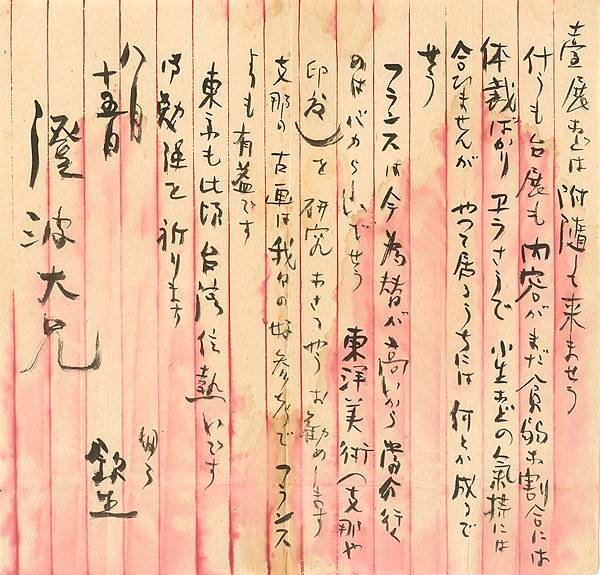 臺展などは附隨して来ませう
何うも台展も内容がまだ貧弱な割合には
体裁ばかりエラさうで 小生などの氣持には
合ひませんが やつて居るうちには何とか成るで
せう
フランスは今為替が高いから當分行く
のはバカらしいでせう 東洋美術(支那や
印度)を研究なさるやうお勧めします
支那の古画は我々の好参考でフランス
よりも有益です
東京も此頃台湾位熱いです
御勉強を祈ります
八月
十五日
欽生
澄波大兄